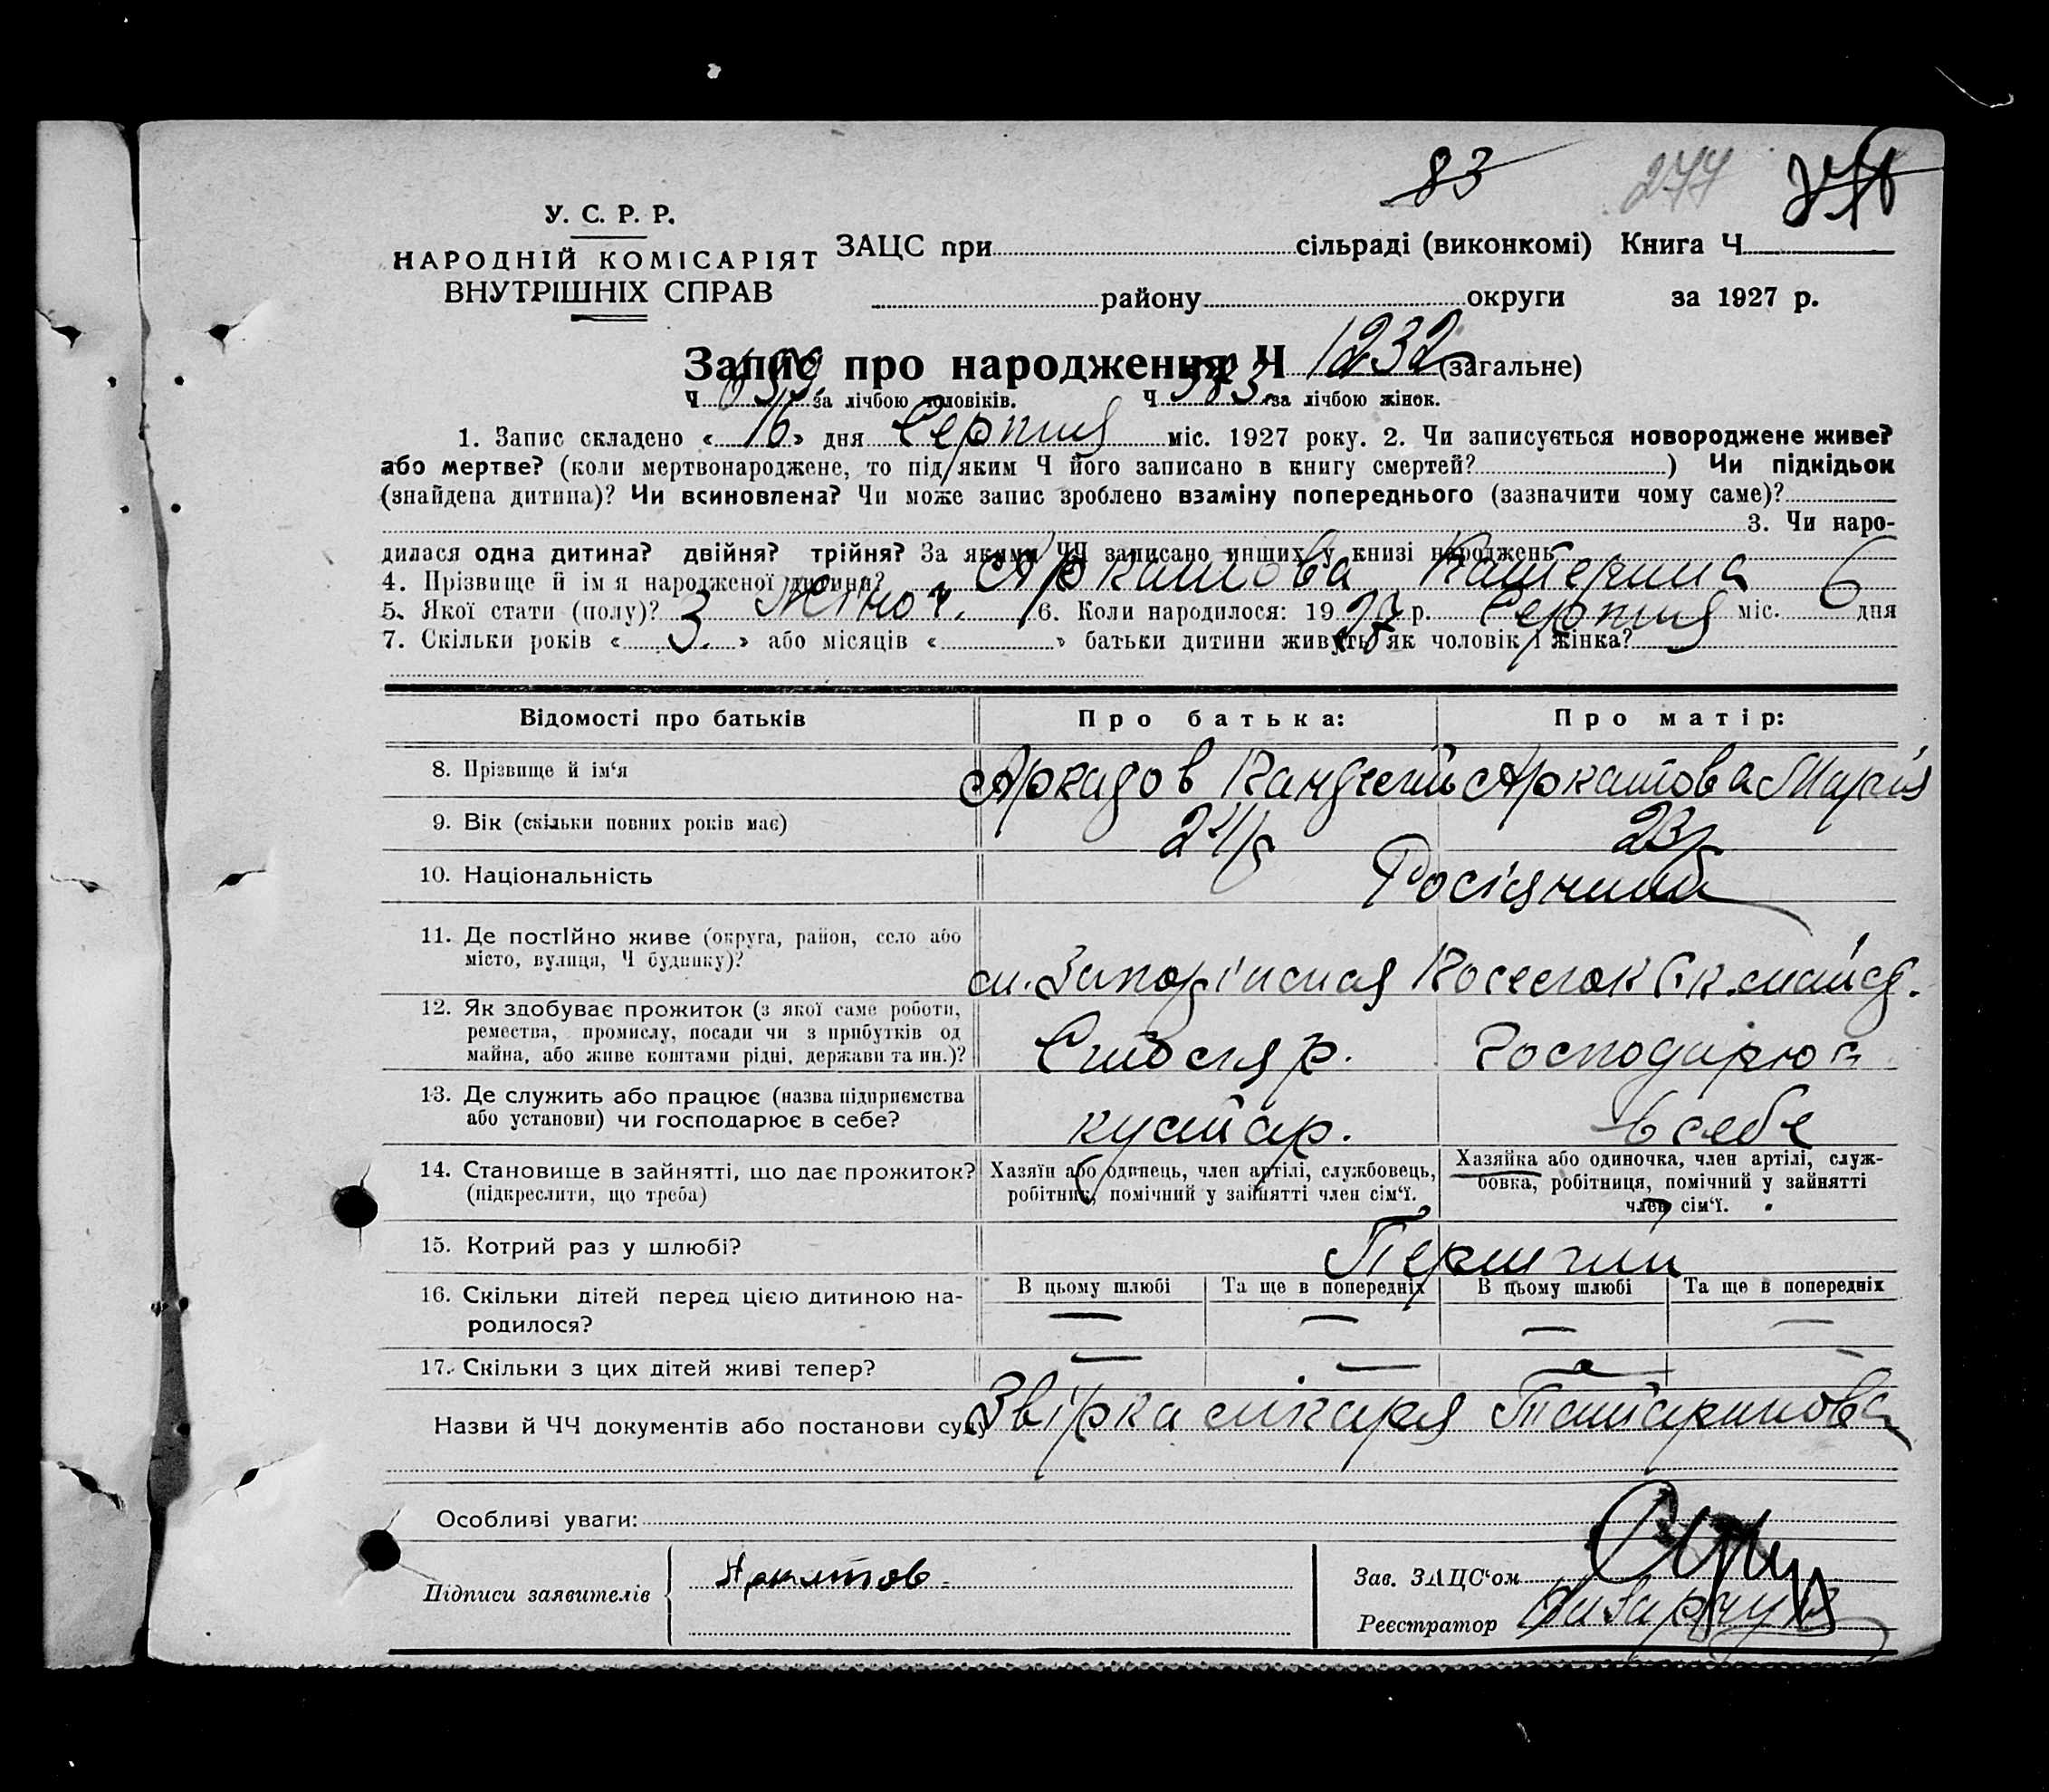 83 277
У. С. Р. Р.
НАРОДНІЙ КОМІСАРІЯТ
ВНУТРІШНІХ СПРАВ
ЗАЦС при сільраді (виконкомі) Книга Ч
району округи за 1927 р.
Запис про народження Ч 1232 (загальне)
Ч 659 за лічбою чоловіків. Ч 583 за лічбою жінок.
1. Запис складено « 16 » дня Серпня міс. 1927 року. 2. Чи записується новороджене живе?
або мертве? (коли мертвонароджене, то під яким Ч його записано в книгу смертей? ) Чи підкідьок
(знайдена дитина)? Чи всиновлена? Чи може запис зроблено взаміну попереднього (зазначити чому саме)?
3. Чи наро-
дилася одна дитина? двійня? трійня? За якими ЧЧ записано инших у книзі народжень
4. Прізвище й ім'я народженої дитини? Аркатова Катерина
5. Якої стати (полу)? жіноч. 6. Коли народилося: 19 27 р. Серпня міс. 6 дня
7. Скільки років « 3 » або місяців « » батьки дитини живуть як чоловік і жінка?
Відомості про батьків Про батька: Про матір:
8. Прізвище й ім‘я Аркадов Аркатова Марія
9. Вік (скільки повних років має) 23
10. Національність Росіяни
11. Де постійно живе (округа, район, село або
місто, вулиця, Ч будинку)?
12. Як здобуває прожиток (з якої саме роботи,
ремества, промислу, посади чи з прибутків од
майна, або живе коштами рідні, держави та ин.)? Столяр. Господарює
13. Де служить або працює (назва підприємства
або установи) чи господарює в себе? кустар. в себе
14. Становище в зайнятті, що дає прожиток?
(підкреслити, що треба)
Хазяїн або одинець, член артілі, службовець,
робітник, помічний у зайнятті член сім‘ї.
Хазяйка або одиночка, член артілі, служ-
бовка, робітниця, помічний у зайнятті
член сім‘ї.
15. Котрий раз у шлюбі? Перший
В цьому шлюбі Та ще в попередніх В цьому шлюбі Та ще в попередніх
16. Скільки дітей перед цією дитиною на-
родилося? — — — —
17. Скільки з цих дітей живі тепер? — — — —
Назви й ЧЧ документів або постанови суду Звірка лікаря Татаринова
Особливі уваги:
Підписи заявителів Аркатов
Зав. ЗАЦС‘ом
Реєстратор